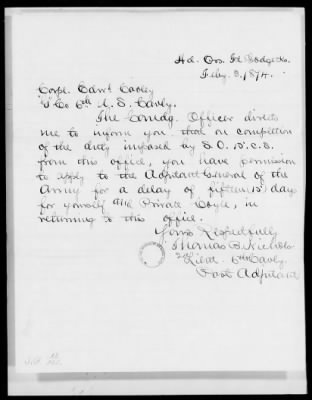 Hd. Qrs. Ft. Dodge Ks.
Feby. 3, 1874.
Corpl. Edwd
"I" Co 6th U. S. Cavly.
The Comdg. Officer directs
me to inform you, that on completion
of the duty imposed by S.O. 15, C.S.
from this office, you have permission
to apply to the Adjutant General of the
Army for a delay of fifteen 15 days
for yourself and Private Coyle, in
returning to this office.
Yours Respectfully
Thomas B. Nichols
2nd Lieut. 6th Cavly.
Post Adjutant